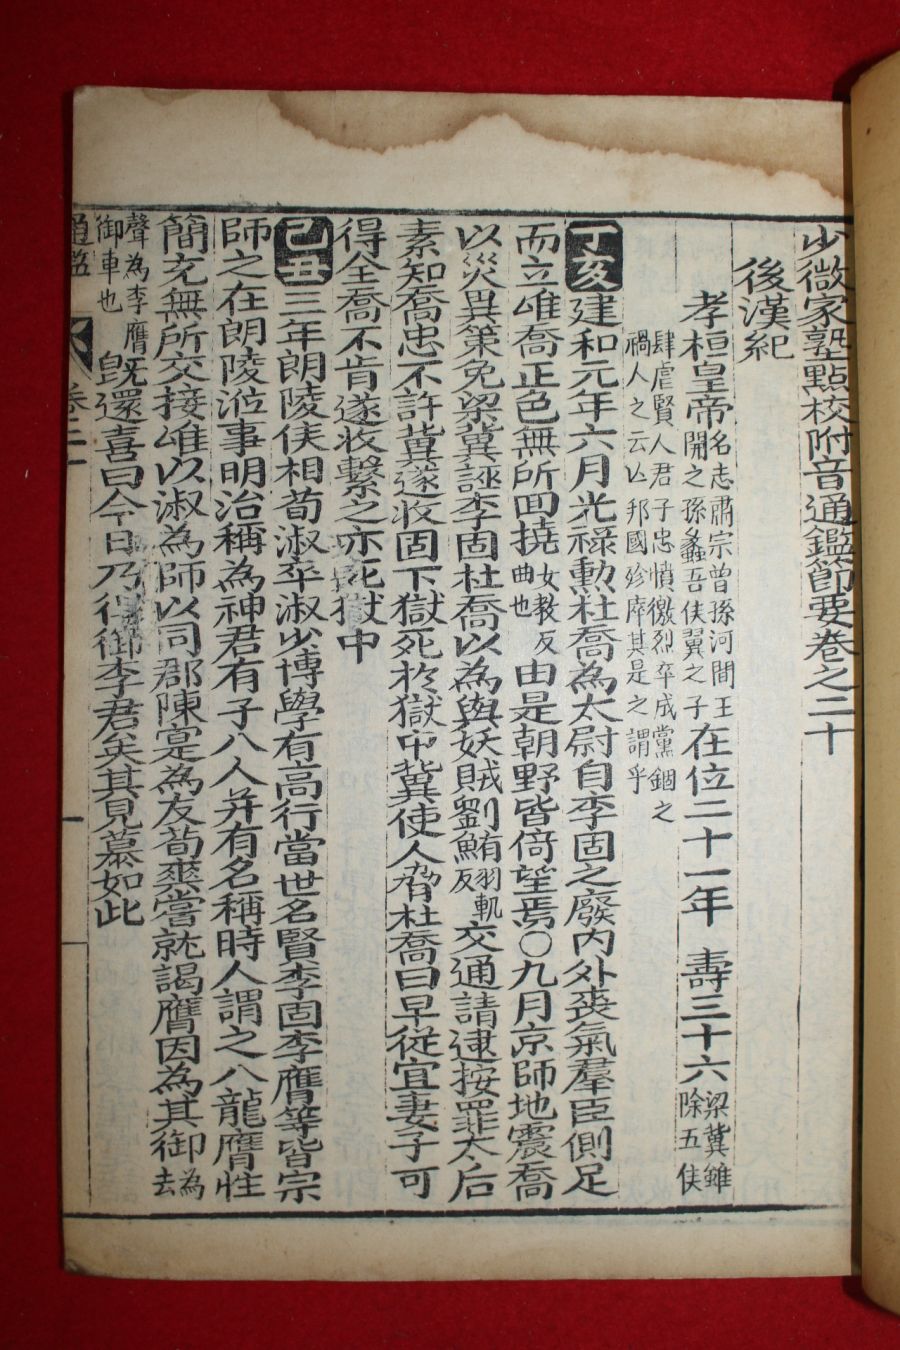 少微家塾點校附音通鑑節要卷之二十
後漢紀
孝桓皇帝名志肅宗曾孫河間王開之孫蠡吾侯翼之子在位二十一年 壽三十六梁冀雖除五侯
肆虐賢人君子忠憤激烈卒成黨錮之禍人之云亡邦國殄瘁其是之謂乎
丁亥建和元年六月光祿勲杜喬為太尉自李固之廢內外喪氣羣臣側足
而立唯喬正色無所回撓女敎反曲也由是朝野皆倚望焉〇九月京師地震喬
以災異策免梁冀誣李固杜喬以為與妖賊劉鮪羽軌反交通請逮按罪太后
素知喬忠不許冀遂收固下獄死於獄中冀使人脅杜喬曰早從宜妻子可
得全喬不肯遂收繫之亦死獄中
己丑三年朗陵侯相荀淑卒淑少博學有高行當世名賢李固李膺等皆宗
師之在朗陵涖事明治稱為神君有子八人并有名稱時人謂之八龍膺性
簡亢無所交接唯以淑為師以同郡陳寔為友荀爽嘗就謁膺因為其御為去
聲為李膺御車也旣還喜曰今日乃得御李君矣其見慕如此
通鑑 卷二十